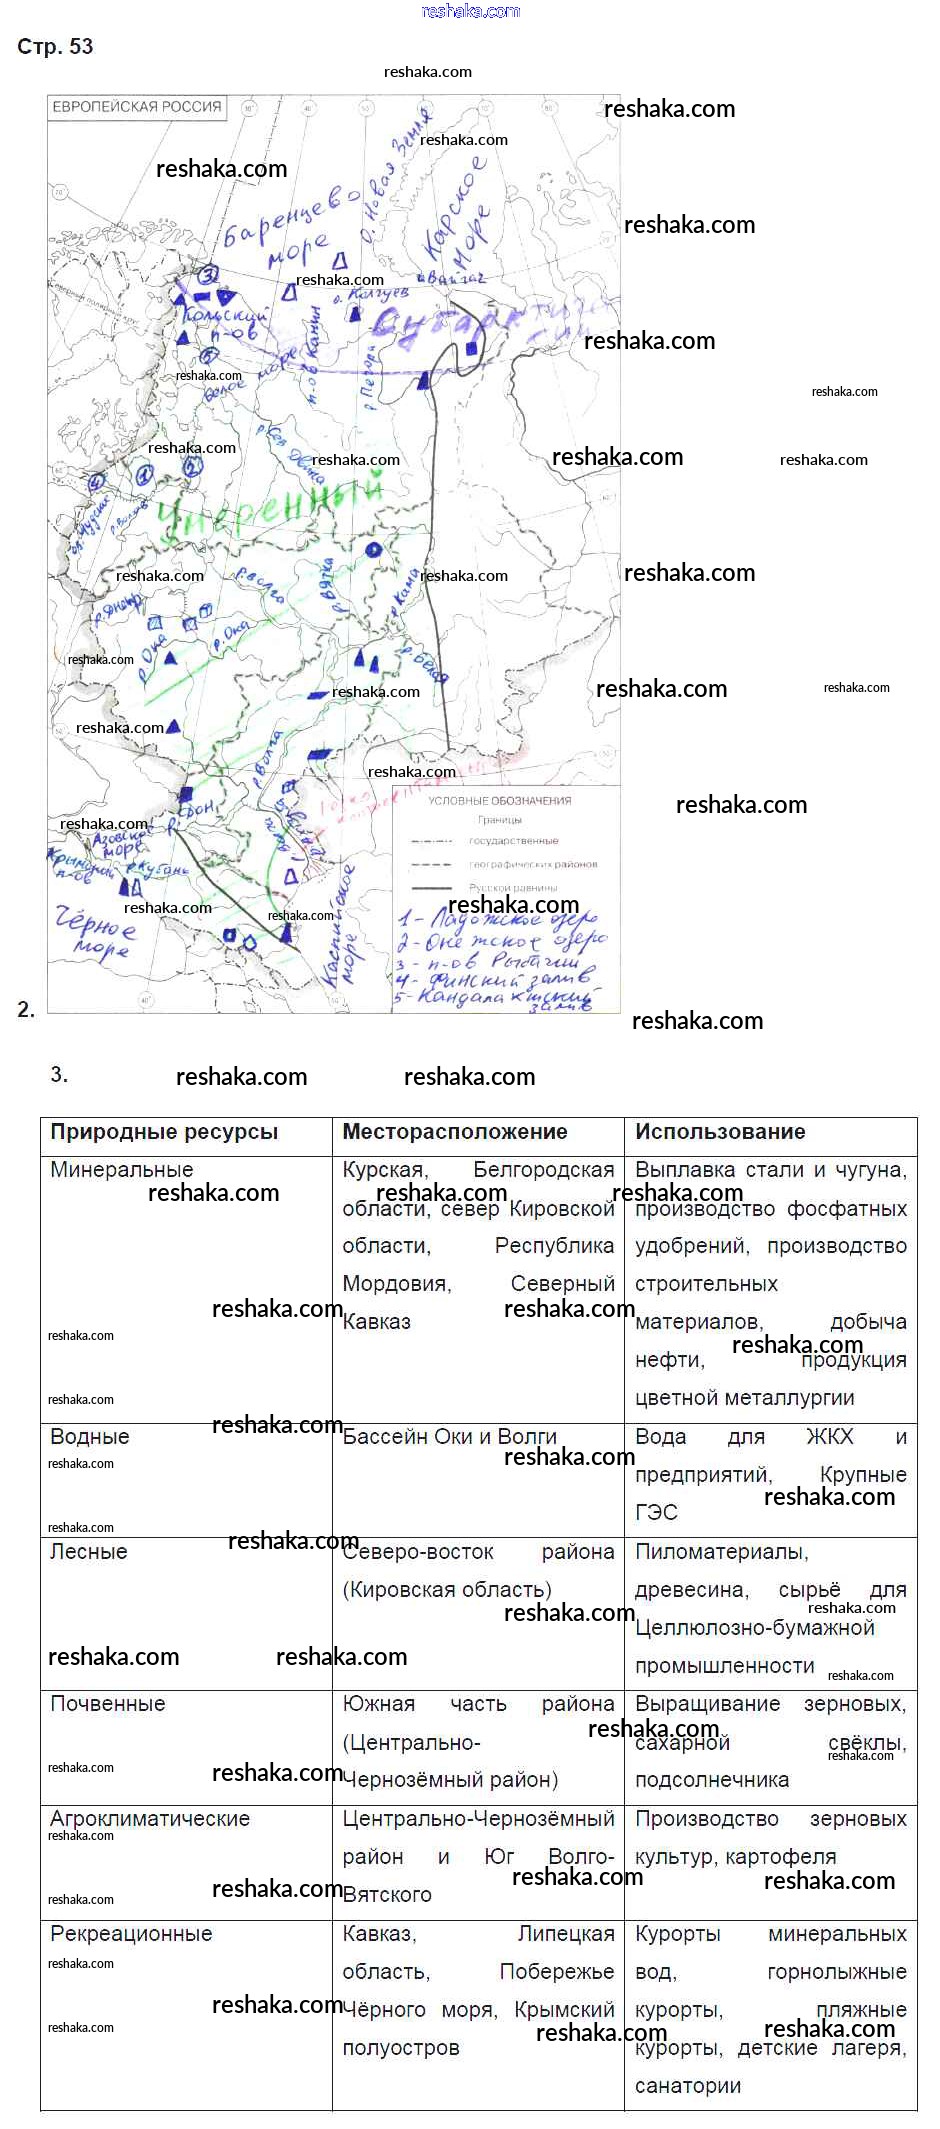 reshaka.com
Стр. 53
ЕВРОПЕЙСКАЯ РОССИЯ
Баренцево
море
о. Новая Земля
Карское
море
о. Вайгач
о. Колгуев
Субаркти
3
Кольский
п-ов
5
Белое море
п-ов Канин
р. Печора
р. Сев Двина
4
1
2
оз. Чудское
р. Волхов
Умеренный
р. Волга
р. Вятка
р. Кама
р. Днепр
р. Ока
р. Ока
р. Белая
р. Волга
р. Дон
Азовское
море
Крымский
п-ов
р. Кубань
Чёрное
море
Каспийское
море
УСЛОВНЫЕ ОБОЗНАЧЕНИЯ
Границы
государственные
географических районов
Русской равнины
1 - Ладожское озеро
2 - Онежское озеро
3 - п-ов Рыбачий
4 - Финский залив
5 - Кандалакшский
залив
2.
3.
Природные ресурсы
Месторасположение
Использование
Минеральные
Курская, Белгородская
области, север Кировской
области, Республика
Мордовия, Северный
Кавказ
Выплавка стали и чугуна,
производство фосфатных
удобрений, производство
строительных
материалов, добыча
нефти, продукция
цветной металлургии
Водные
Бассейн Оки и Волги
Вода для ЖКХ и
предприятий, Крупные
ГЭС
Лесные
Северо-восток района
(Кировская область)
Пиломатериалы,
древесина, сырьё для
Целлюлозно-бумажной
промышленности
Почвенные
Южная часть района
(Центрально-
Чернозёмный район)
Выращивание зерновых,
сахарной свёклы,
подсолнечника
Агроклиматические
Центрально-Чернозёмный
район и Юг Волго-
Вятского
Производство зерновых
культур, картофеля
Рекреационные
Кавказ, Липецкая
область, Побережье
Чёрного моря, Крымский
полуостров
Курорты минеральных
вод, горнолыжные
курорты, пляжные
курорты, детские лагеря,
санатории